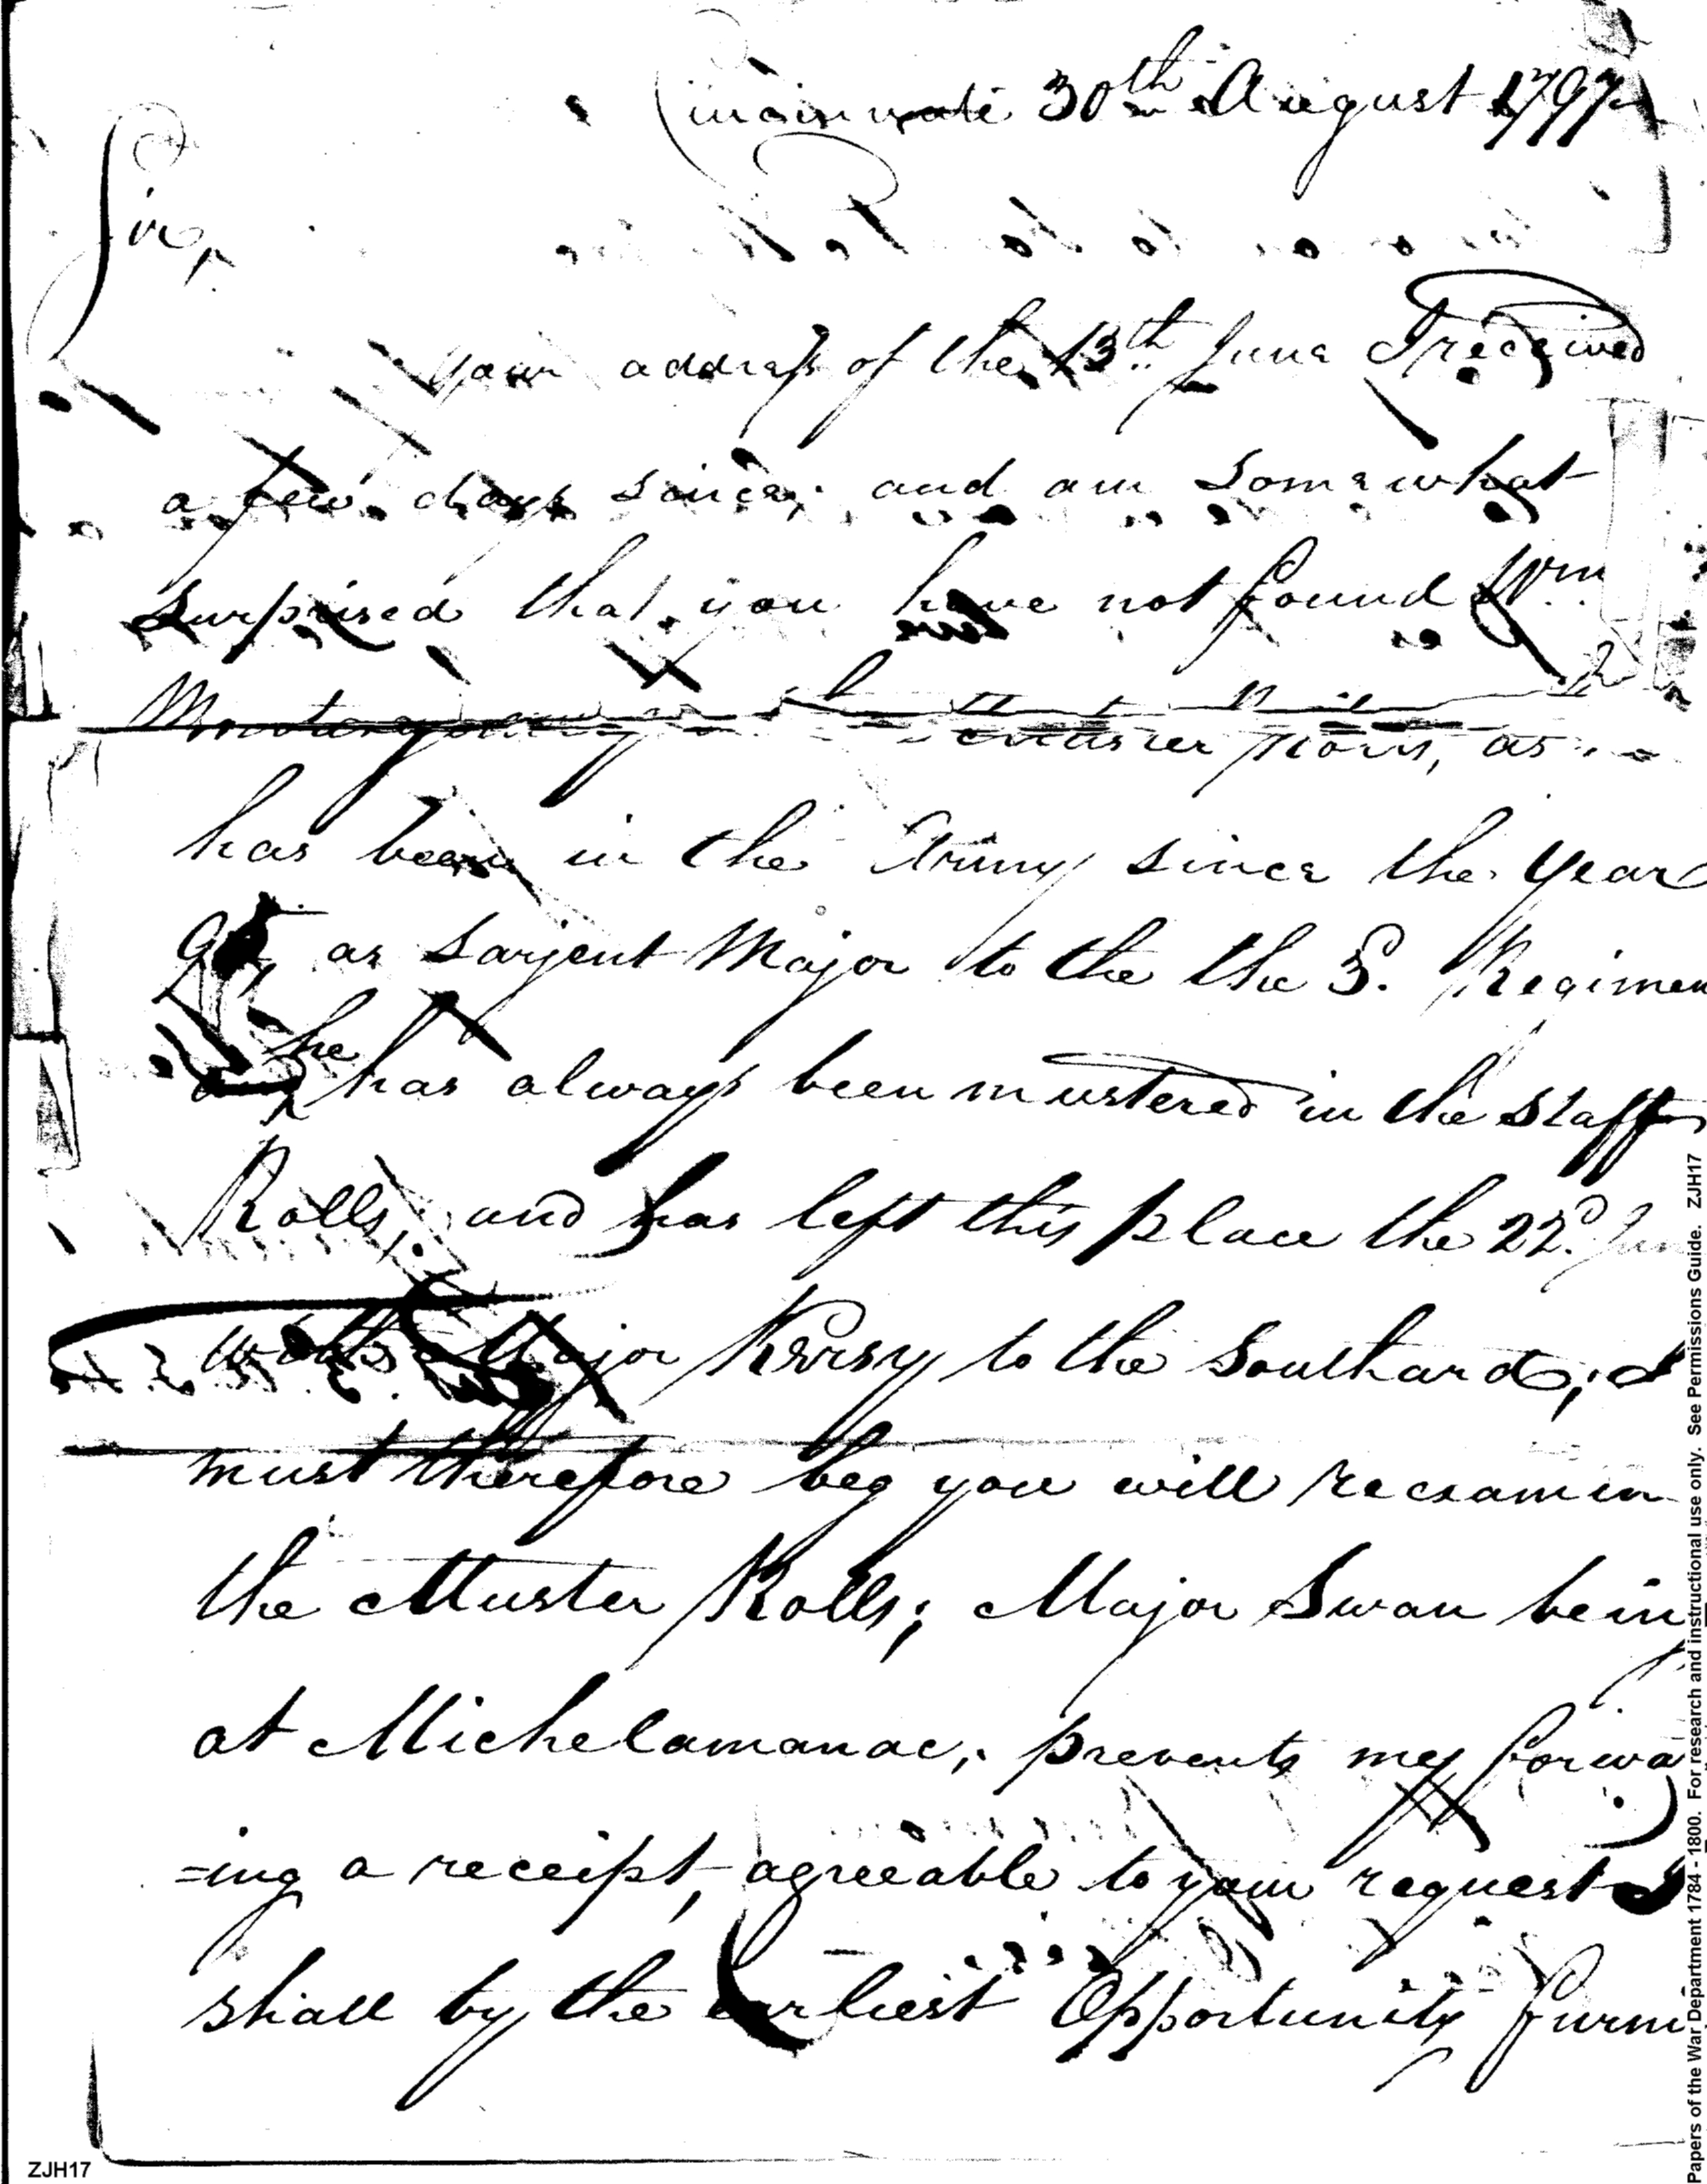 Cincinnati 30th August 1797
Sir,
Your address of the 13th June I received
a few days since; and am somewhat
surprised that you have not found Wm
Montgomery muster Rolls, as
has been in the Army since the Year
as Sarjent Major to the the 3. Regimen
he
and has always been mustered in the Staff
Rolls, and has left this place the 22d. Jun
with Major Kersy to the Southard; I
must therefore beg you will reexamin
the Muster Rolls; Major Swan being
at Michelamanac, prevents my forwa
=ing a receipt, agreeable to your request I
shall by the earliest Opportunity furni
ZJH17
Papers of the War Department 1784 - 1800. For research and instructional use only. See Permissions Guide. ZJH17